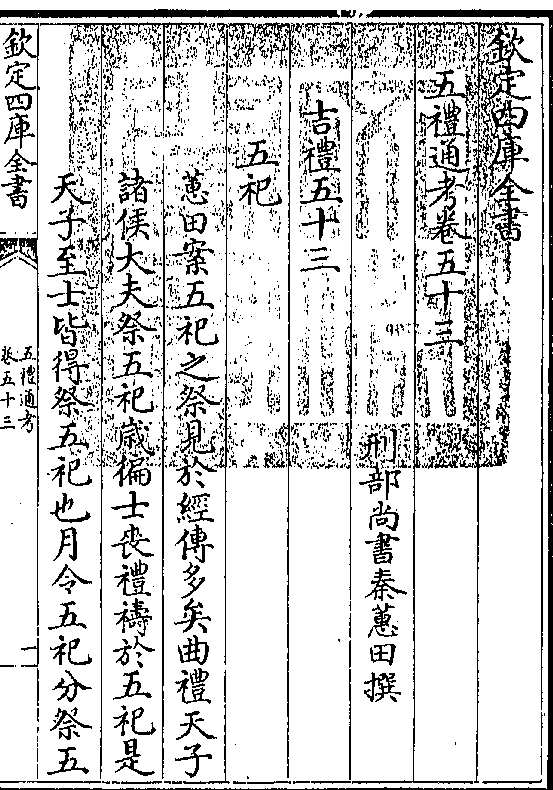 欽定四庫全書
五禮通考卷五十三
刑部尚書秦蕙田撰
吉禮五十三
五祀
蕙田案五祀之祭見於經傳多矣曲禮天子
諸侯大夫祭五祀歲徧士喪禮禱於五祀是
天子至士皆得祭五祀也月令五祀分祭五
欽定四庫全書
五禮通考
卷五十三
一